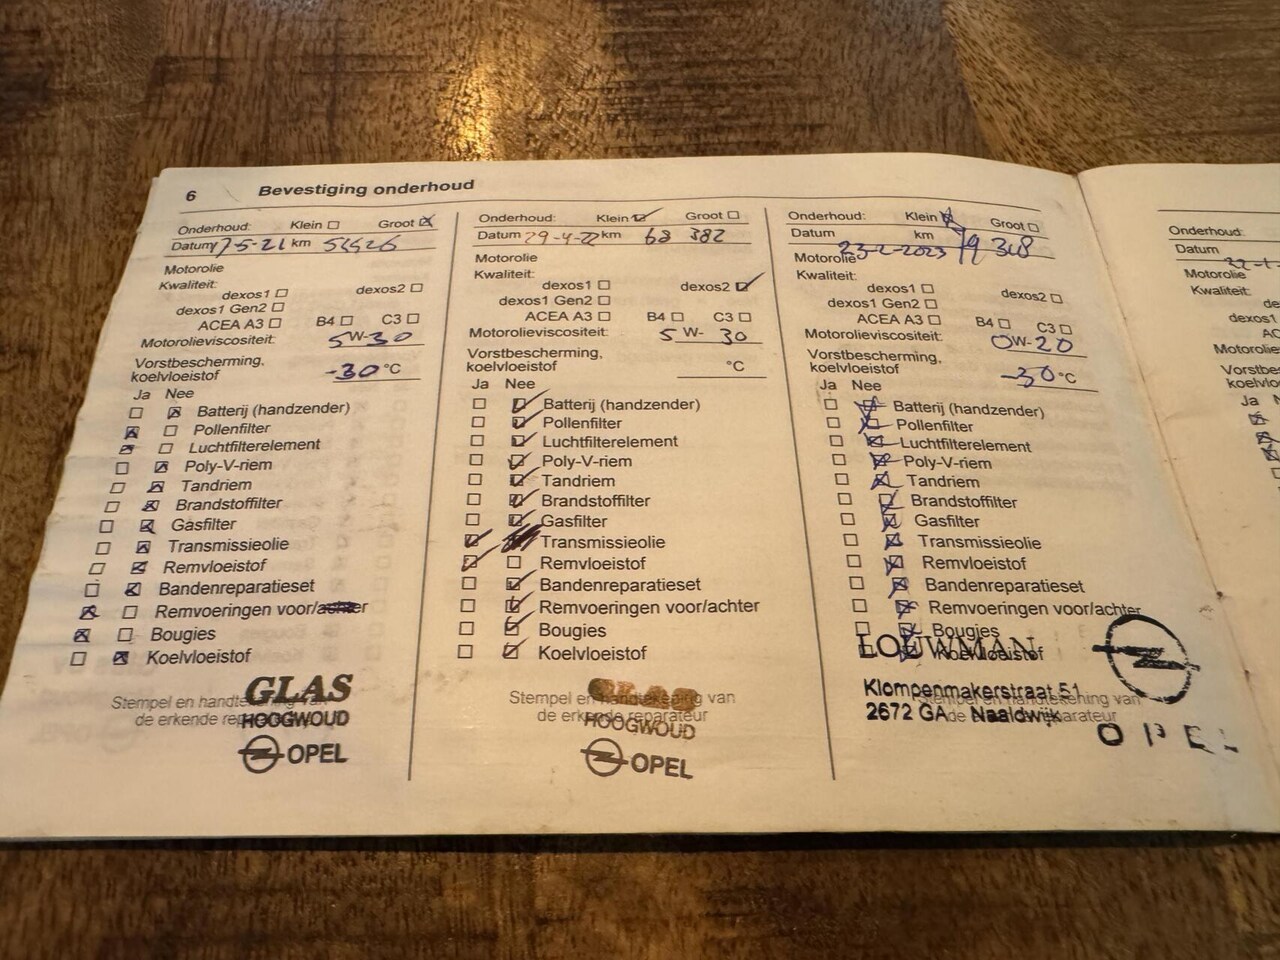 6 Bevestiging onderhoud
Onderhoud: Klein Groot
Datum 7-5-21 km
Motorolie
Kwaliteit:
dexos1 dexos2
dexos1 Gen2
ACEA A3 B4 C3
Motorolieviscositeit: 5W-30
Vorstbescherming,
koelvloeistof -30 °C
Ja Nee
Batterij (handzender)
Pollenfilter
Luchtfilterelement
Poly-V-riem
Tandriem
Brandstoffilter
Gasfilter
Transmissieolie
Remvloeistof
Bandenreparatieset
Remvoeringen voor/achter
Bougies
Koelvloeistof
Stempel en handtekening van
de erkende
GLAS
HOOGWOUD
OPEL
Onderhoud: Klein Groot
Datum 29-4-22 km 68 382
Motorolie
Kwaliteit:
dexos1 dexos2
dexos1 Gen2
ACEA A3 B4 C3
Motorolieviscositeit: 5 W- 30
Vorstbescherming,
koelvloeistof °C
Ja Nee
Batterij (handzender)
Pollenfilter
Luchtfilterelement
Poly-V-riem
Tandriem
Brandstoffilter
Gasfilter
Transmissieolie
Remvloeistof
Bandenreparatieset
Remvoeringen voor/achter
Bougies
Koelvloeistof
Stempel en handtekening van
de erkende reparateur
HOOGWOUD
OPEL
Onderhoud: Klein Groot
Datum 23-2-2023 km 79 348
Motorolie
Kwaliteit:
dexos1 dexos2
dexos1 Gen2
ACEA A3 B4 C3
Motorolieviscositeit: 0W-20
Vorstbescherming,
koelvloeistof -30 °C
Ja Nee
Batterij (handzender)
Pollenfilter
Luchtfilterelement
Poly-V-riem
Tandriem
Brandstoffilter
Gasfilter
Transmissieolie
Remvloeistof
Bandenreparatieset
Remvoeringen voor/achter
Bougies
Koelvloeistof
Stempel en handtekening van
de erkende reparateur
LOUWMAN
Klompenmakerstraat 51
2672 GA Naaldwijk
OPEL
Onderhoud:
Datum
Motorolie
Kwaliteit:
Ja